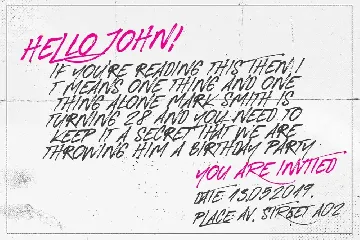 HELLO JOHN!
IF YOU'RE READING THIS THEN I
T MEANS ONE THING AND ONE
THING ALONE MARK SMITH IS
TURNING 28 AND YOU NEED TO
KEEP IT A SECRET THAT WE ARE
THROWING HIM A BIRTHDAY PARTY.
YOU ARE INVITED
DATE 13.092019.
PLACE AV. STREET A02